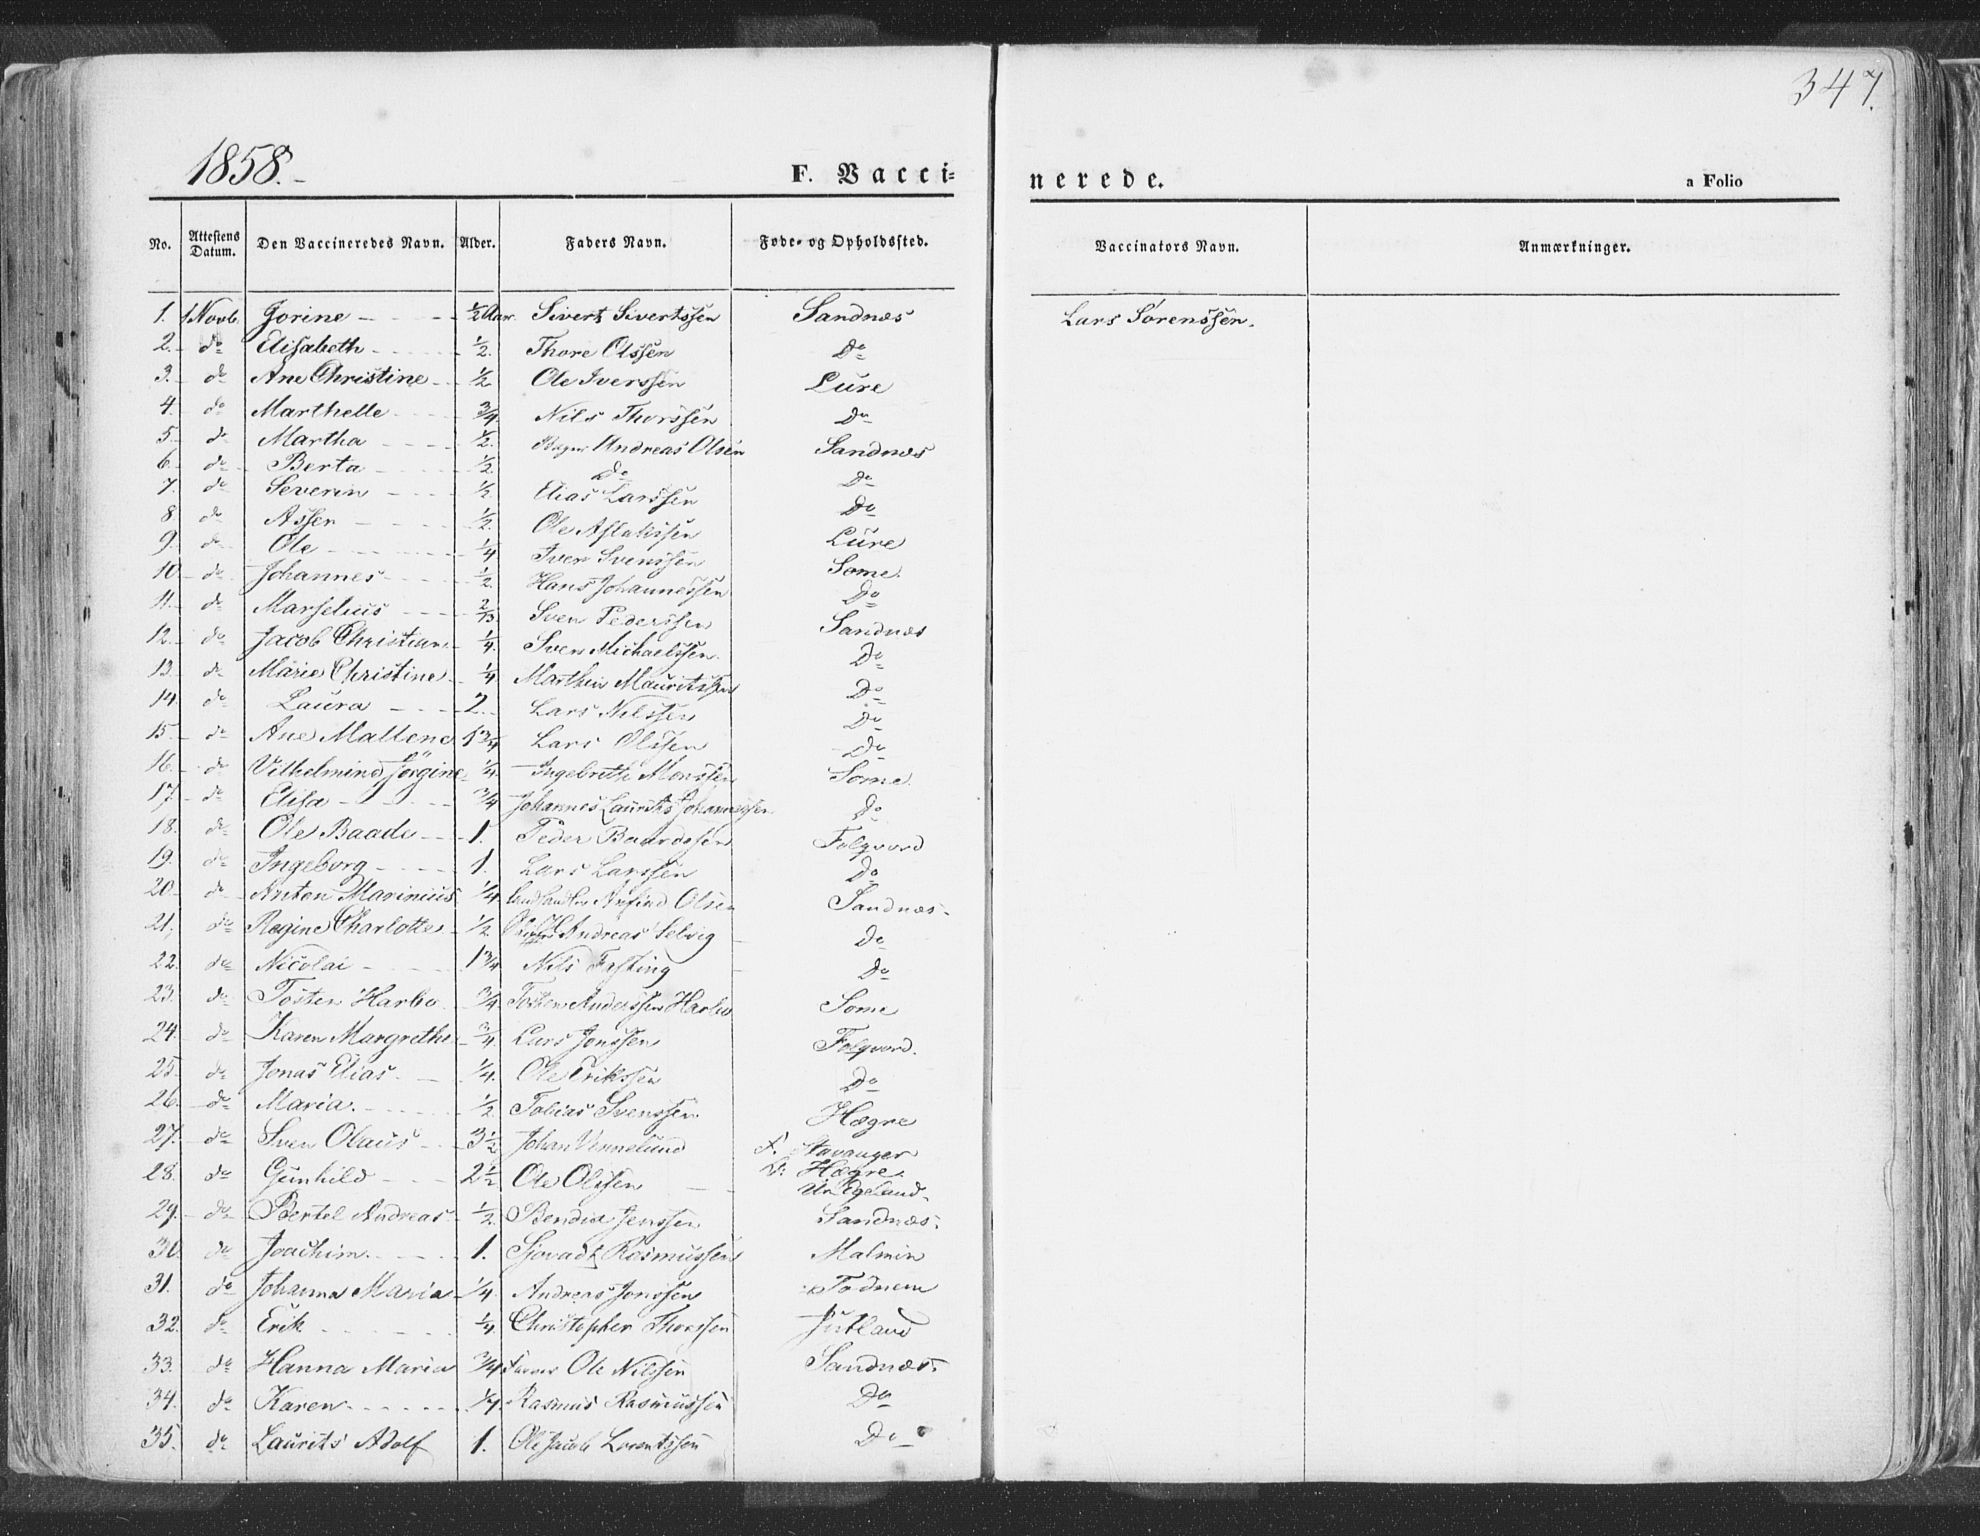 347.
1858.
F. Vacci-
nerede.
a Folio
No. Attestens Datum. Den Vaccineredes Navn. Alder. Faders Navn. Føde- og Opholdssted. Vaccinators Navn. Anmærkninger.
1. 1 Novb. Jorine ½ Aar. Sivert Sivertssen Sandnæs Lars Sørenssen.
2. do Elisabeth ½. Thore Olssen Do
3. do Ane Christine ½ Ole Iverssen Lure
4. do Marthelle ¾. Nils Thorssen Do
5. do Martha ½. Andreas Olsen Sandnæs
6. do Berta ½ Do Do
7. do Severin ½. Elias Larssen Do
8. do Assen ½. Ole Aslakssen Lure
9. do Ole ¼ Iver Svenssen Some.
10. do Johannes ½. Hans Johannessen Do
11. do Marselius 2/3. Sven Pederssen Sandnæs
12. do Jacob Christian ¼. Sven Michaelssen. Do
13. do Marie Christine ¼ Marthin Mauritssen Do
14. do Laura 2. Lars Nilssen Do
15. do Ane Mallene 1¾ Lars Olssen Do
16. do Vilhelmine Jørgine ¼ Ingebreth Monssen Some.
17. do Elisa ¾ Johannes Laurits Johannessen Do
18. do Ole Baade 1. Peder Baardssen Folqvord
19. do Ingeborg 1. Lars Larssen Do
20. do Anton Marinius ¼ Landhandler Anfind Olsen Sandnæs.
21. do Regine Charlotte ½ Andreas Selvig Do
22. do Nicolai 1¾ Nils Fasting Do
23. do Tosten Harbo ¾ Tosten Anderssen Harbo Some
24. do Karen Margrethe ¾ Lars Jonssen Folqvord.
25. do Jonas Elias ¼. Ole Erikssen Do
26. do Maria. ½ Tobias Svenssen. Hægre
27. do Sven Olaus 3½ Johan Vennelund F. Stavanger
O: Hægre.
28. do Gunhild 2½ Ole Olssen Ur Egeland.
29. do Bertel Andreas ½ Bendix Jenssen Sandnæs.
30. do Joachim. 1. Sjovadt Rasmussen Malmin
31. do Johanna Maria ¼ Andreas Jonssen Todnem
32. do Erik ¼ Christopher Thorssen Jutland
33. do Hanna Maria ¾ Ole Nilssen Sandnæs.
34. do Karen ¼. Rasmus Rasmussen Do
35. do Laurits Adolf 1. Ole Jacob Lorentssen Do